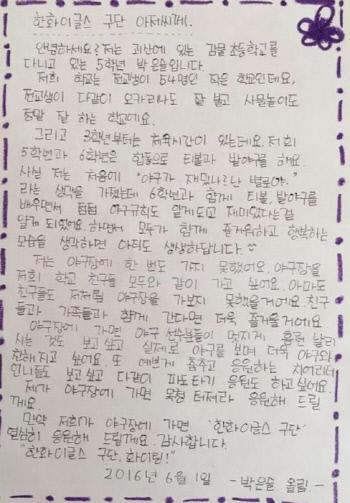 한화이글스 구단 아저씨께.
안녕하세요? 저는 괴산에 있는 감물초등학교를
다니고 있는 5학년 박은솔입니다.
저희 학교는 전교생이 54명인 작은 학교인데요,
전교생이 다같이 오카리나도 잘 불고 사물놀이도
정말 잘 하는 학교예요.
그리고 3학년부터는 체육시간이 있는데요. 저희
5학년과 6학년은 합동으로 티볼과 발야구를 해요.
사실 저는 처음에 "야구가 재밌나? 난 별로야."
라는 생각을 가졌는데 6학년과 함께 티볼, 발야구를
배우면서 점점 야구규칙도 알게되고 재미있다는걸
알게 되었어요. 하면서 모두가 함께 즐거워하고 행복하는
모습을 생각하면 아직도 생생하답니다.
저는 야구장에 한 번도 가지 못했어요. 야구장을
저희 학교 친구들 모두와 같이 가고 싶어요. 아마도
친구들도 저처럼 야구장을 가보지 못했을거예요. 친구
들과 가족들과 함께 간다면 더욱 즐거울거예요.
야구장에 가면 야구 선수분들이 멋지게 홈런 날리
시는 것도 보고 싶고 실제로 야구를 보며 더욱 야구와
친해지고 싶어요. 또 예쁘게 춤추고 응원하는 치어리더
언니들도 보고 싶고 다같이 파도타기 응원도 하고 싶어요.
제가 야구장에 가면 목청 터져라 응원해 드릴
게요.
만약 저희가 야구장에 가면 '한화이글스 구단'
열심히 응원해 드릴게요. 감사합니다.
"한화이글스 구단, 화이팅!"
2016년 6월 1일 -박은솔 올림.-